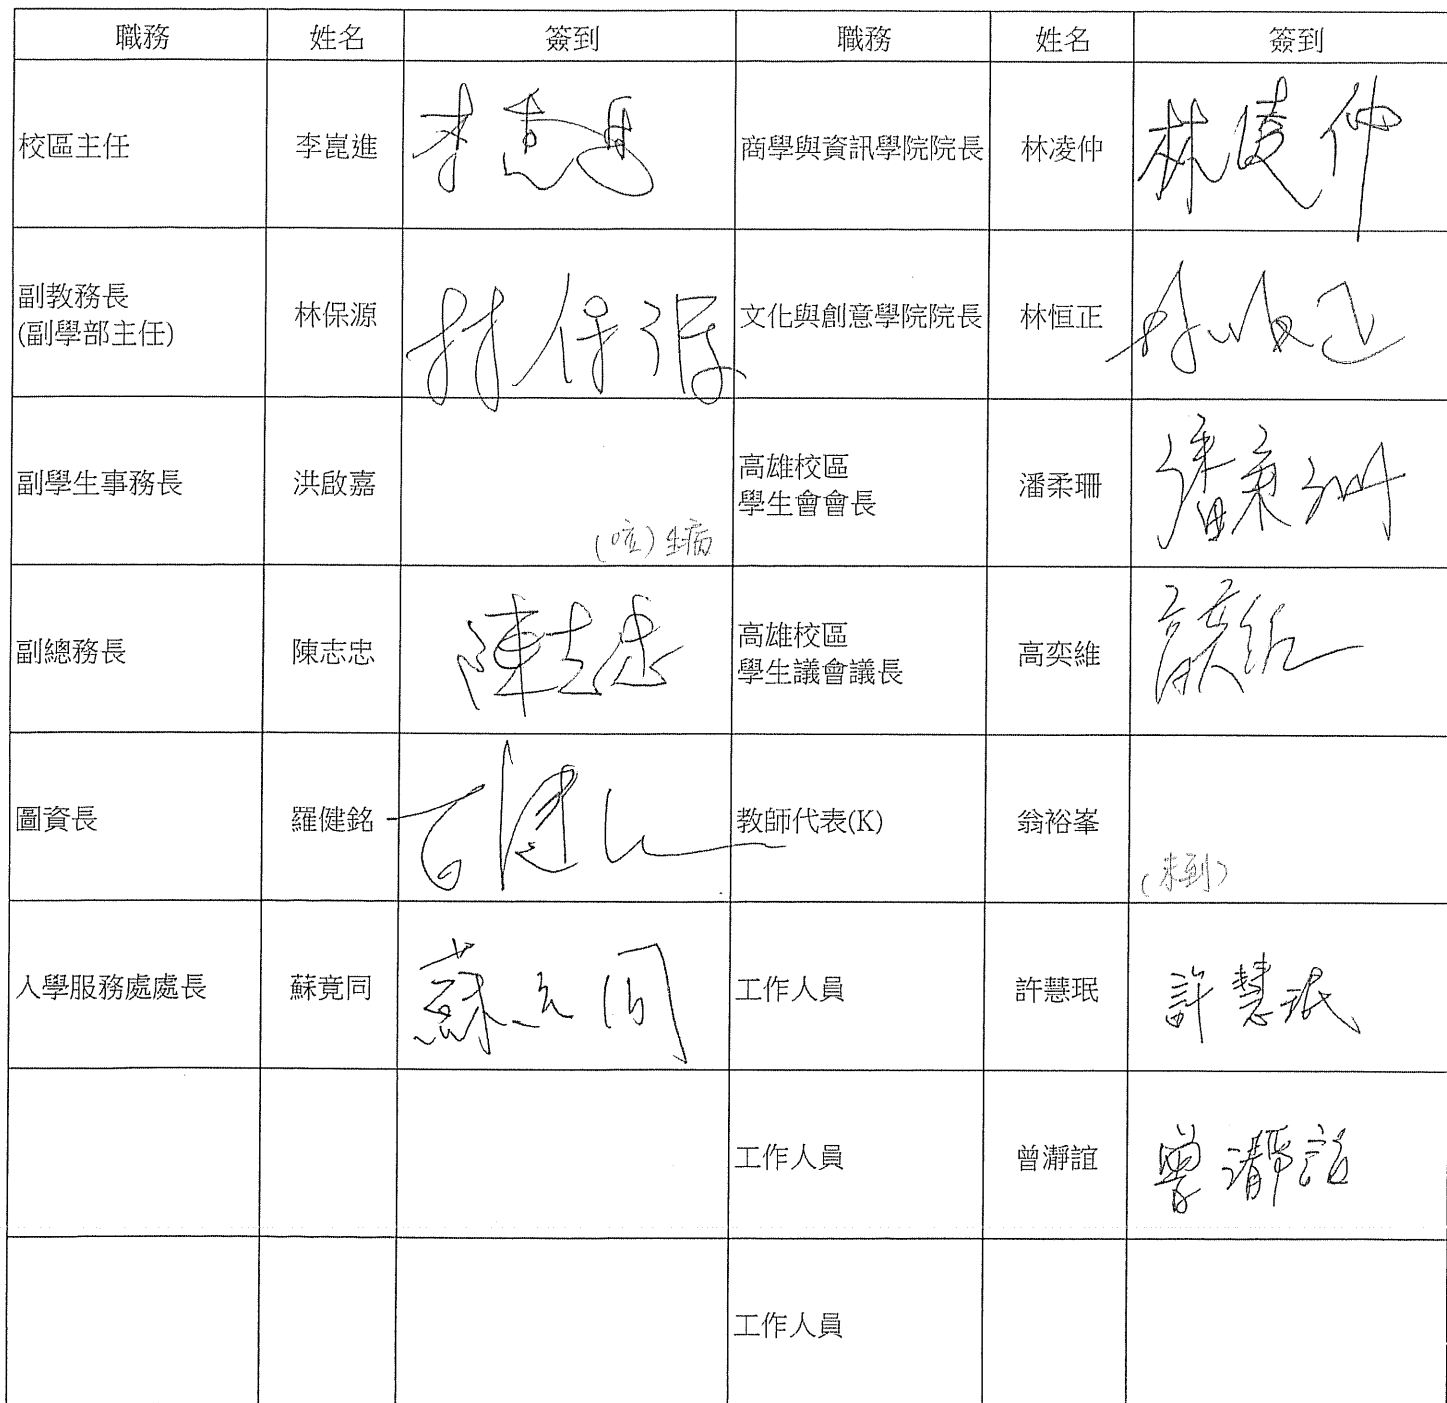 職務 姓名 簽到 職務 姓名 簽到
校區主任 李崑進 李崑進 商學與資訊學院院長 林凌仲 林凌仲
副教務長
(副學部主任) 林保源 林保源 文化與創意學院院長 林恒正 林恒正
副學生事務長 洪啟嘉 生病 高雄校區
學生會會長 潘柔珊 潘柔珊
副總務長 陳志忠 陳志忠 高雄校區
學生議會議長 高奕維 高奕維
圖資長 羅健銘 教師代表(K) 翁裕峯 (未到)
入學服務處處長 蘇竟同 蘇竟同 工作人員 許慧珉 許慧珉
工作人員 曾瀞誼 曾瀞誼
工作人員